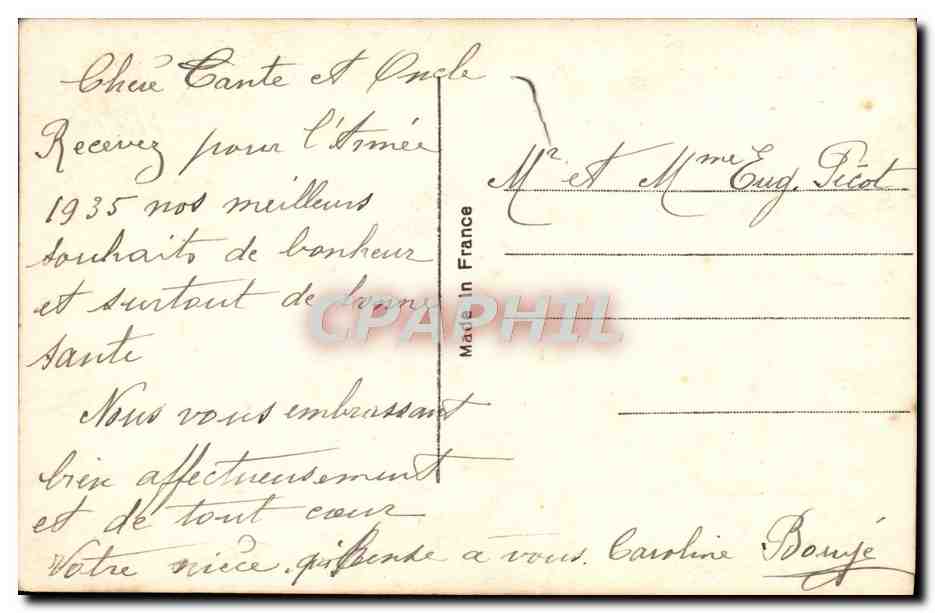 Chère Tante et Oncle
Recevez pour l'Année
1935 nos meilleurs
souhaits de bonheur
et surtout de bonne
sante
Nous vous embrassant
bien affectueusement
et de tout cœur
Votre nièce qui pense à vous. Caroline
Made in France
Mr et Mme Eug. Picot
CPAPHIL